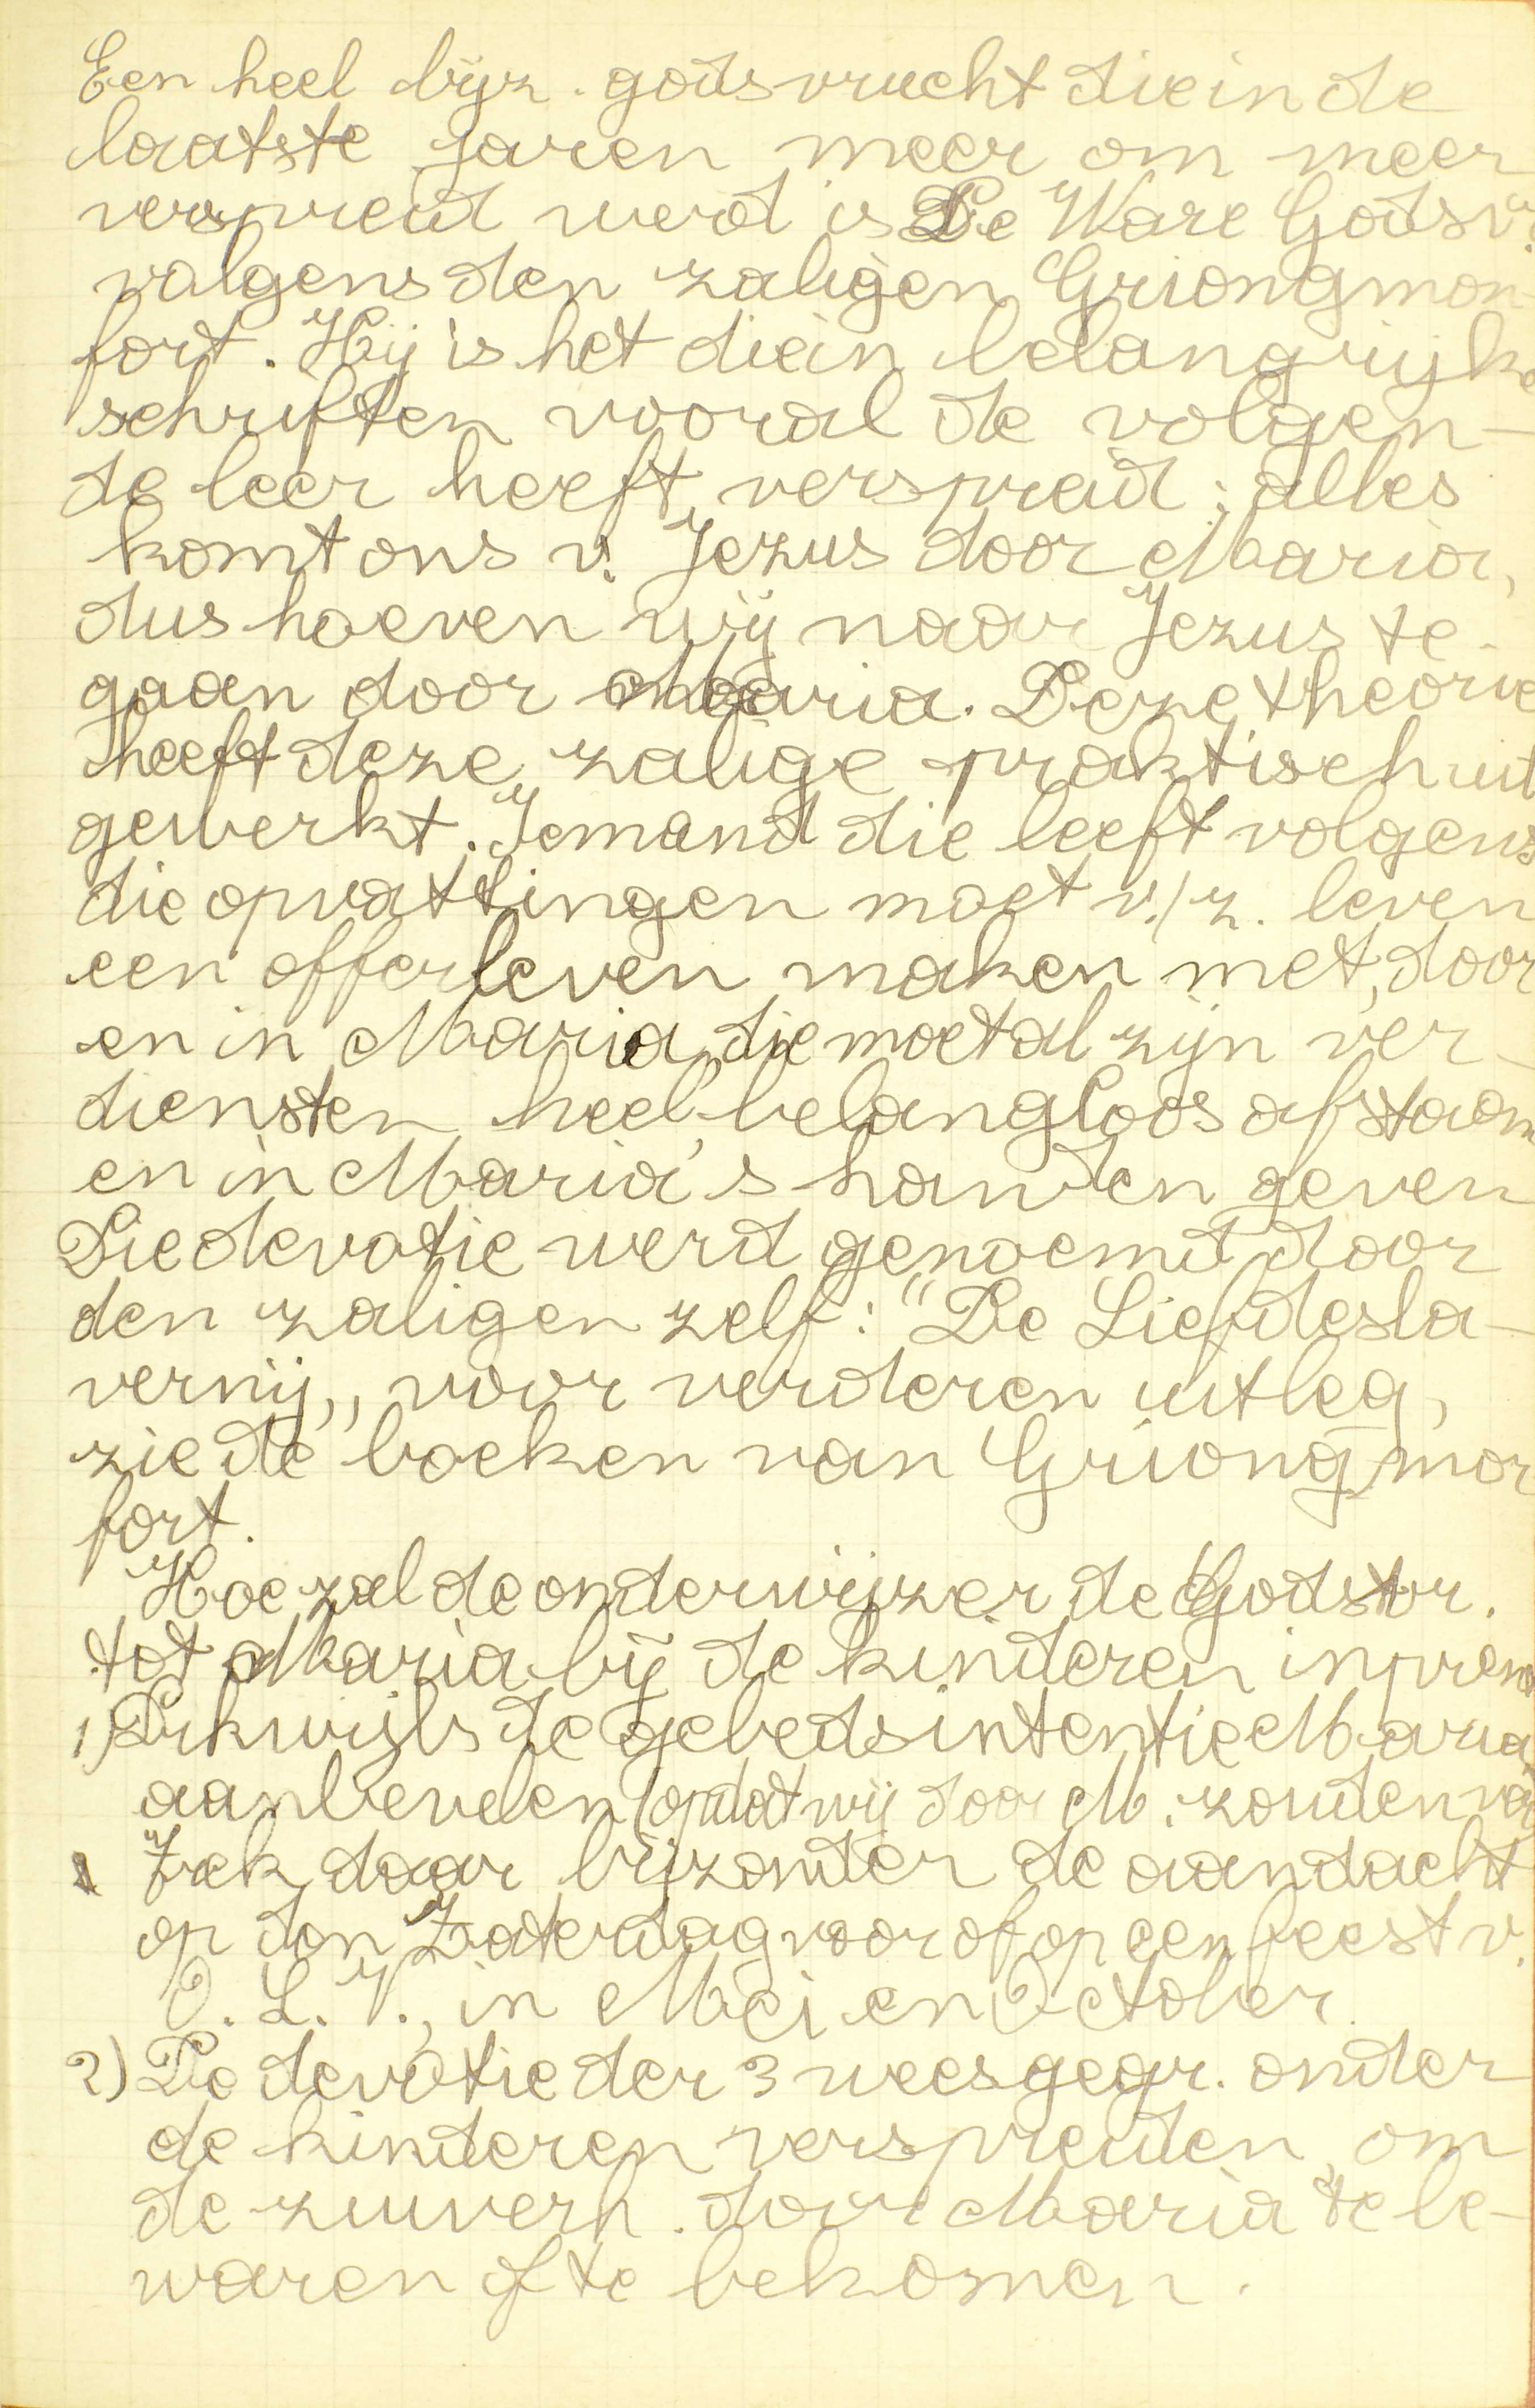 Een heel bijz. godsvrucht die in de
laatste jaren meer om meer
verspreid werd is De Ware Godsv.
volgens den zaligen Griongmon-
fort. Hij is het die in belangrijke
schriften vooral de volgen-
de leer heeft verspreid: alles
komt ons v. Jezus door Maria,
dus hoeven wij naar Jezus te
gaan door Maria. Deze theorie
heeft deze zalige praktisch uit
gewerkt. Iemand die leeft volgens
die opvattingen moet v./z. leven
een offerleven maken met, door
en in Maria, die moet al zijn ver-
diensten heel belangloos afstaan
en in Maria's handen geven
Die devotie werd genoemd door
den zaligen zelf: "De Liefdesla-
vernij,, voor verderen uitleg,
zie de boeken van Griongmon
fort.
Hoe zal de onderwijzer de Godsvr.
tot Maria bij de kinderen inprent
1) Dikwijls de gebedsintentie Maria
aanbevelen (opdat wij door M. zouden
Trek daar bijzonder de aandacht
op den Zaterdag voor of op een feest v.
O. L. V., in Mei en October.
2) De devotie der 3 weesgegr. onder
de kinderen verspreiden om
de zuiverh. door Maria te be-
waren of te bekomen.